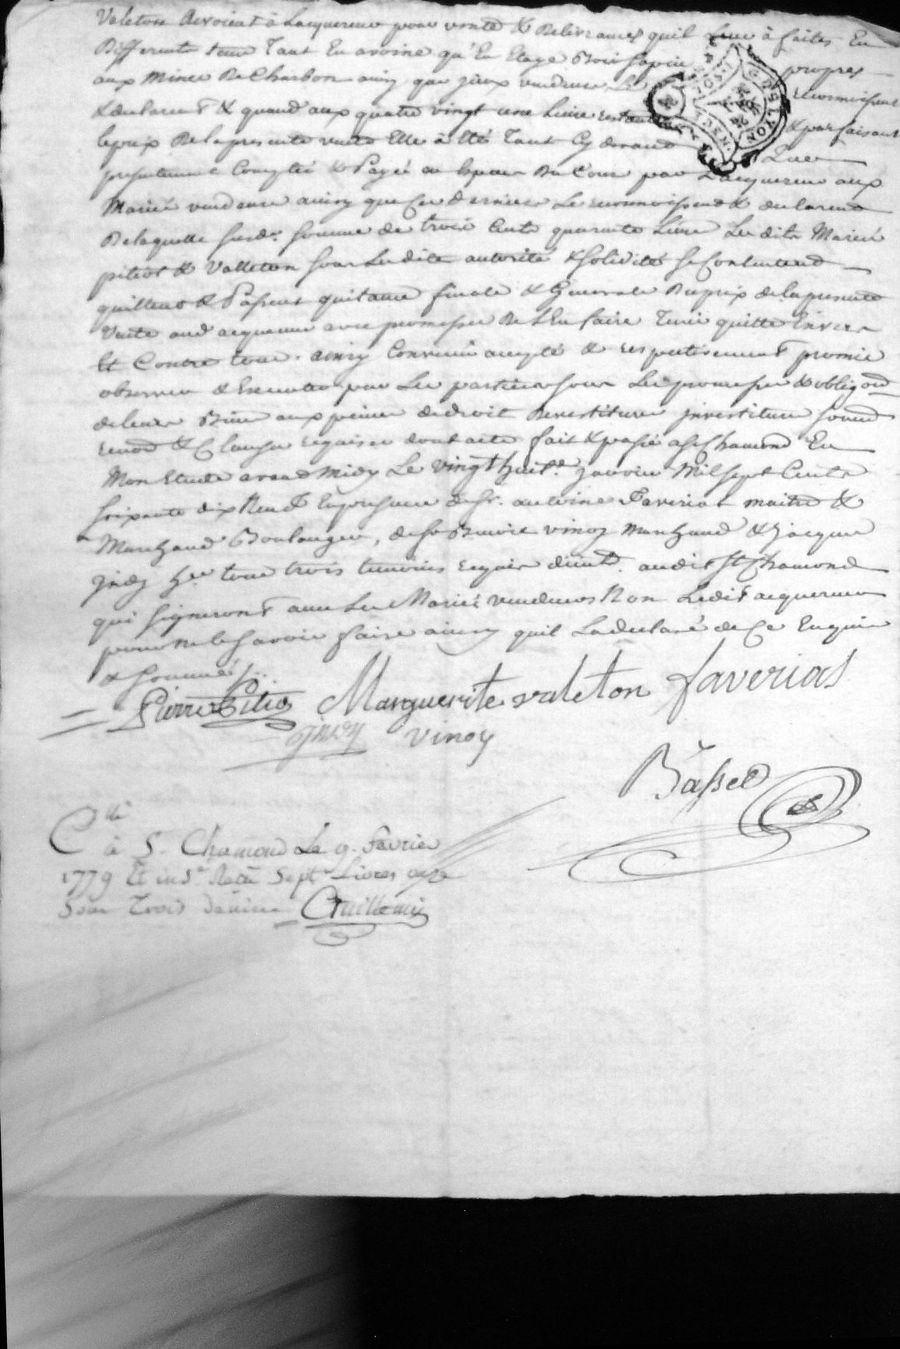 Valeton devoient à Lacquereur pour vente & Delivrances quil leur à faites En
Differents tems Tant En avoine qu'En Etage Bois sapin propres
aux Mines De Charbon ainsy que yceux vendeurs Le reconnoissent
& declarent & quand aux quatre vingt une Livre restante & parfaisant
leprix De la presente vente Elle à Eté Tant Cy devant Que
presentement Comptée & Payée au Espèces Du Cours par Lacquereur aux
Mariés vendeurs ainsy que Ces derniers Le reconnoissent & declarent
De laquelle susde. somme de trois Cents quarante Livre Lesdits Mariés
pitiot & Valleton sous Ladite autorité & solidité se Contentent
quittent & Passent quitance finale & Generale Du prix de la presente
Vente aud acquereur avec promesse De L'En faire Tenir quitte Envers
Et Contre tous. ainsy Convenu accepté & respectivement promis
observer & Executer par Les parties sous Les promesses & obligaon
de leurs Biens aux peines de droit Devestiture investiture soumon
renon & Clauses requises dont acte fait & passé à St Chamond En
Mon Etude avant midy Le vingt huit. janvier Mil sept Cents
soixante dix Neuf En presence de Sr. antoine Faverias maitre &
Marchand Boulanger, de Sr Benoit vinoy Marchand & Jacques
jndy tous trois temoins requis demt. audit St Chamond
qui signeront avec Les Mariés vendeurs Non Ledit acquereur
pour ne le savoir faire ainsy quil La declaré de Ce Enquis
& sommé
Pierre Pitio Marguerite valeton faverias
jndy vinoy
Basset
Clle
à St. Chamond Le 9. fevrier
1779 Et insé Recu Sept Livres onze
Sous Trois deniers